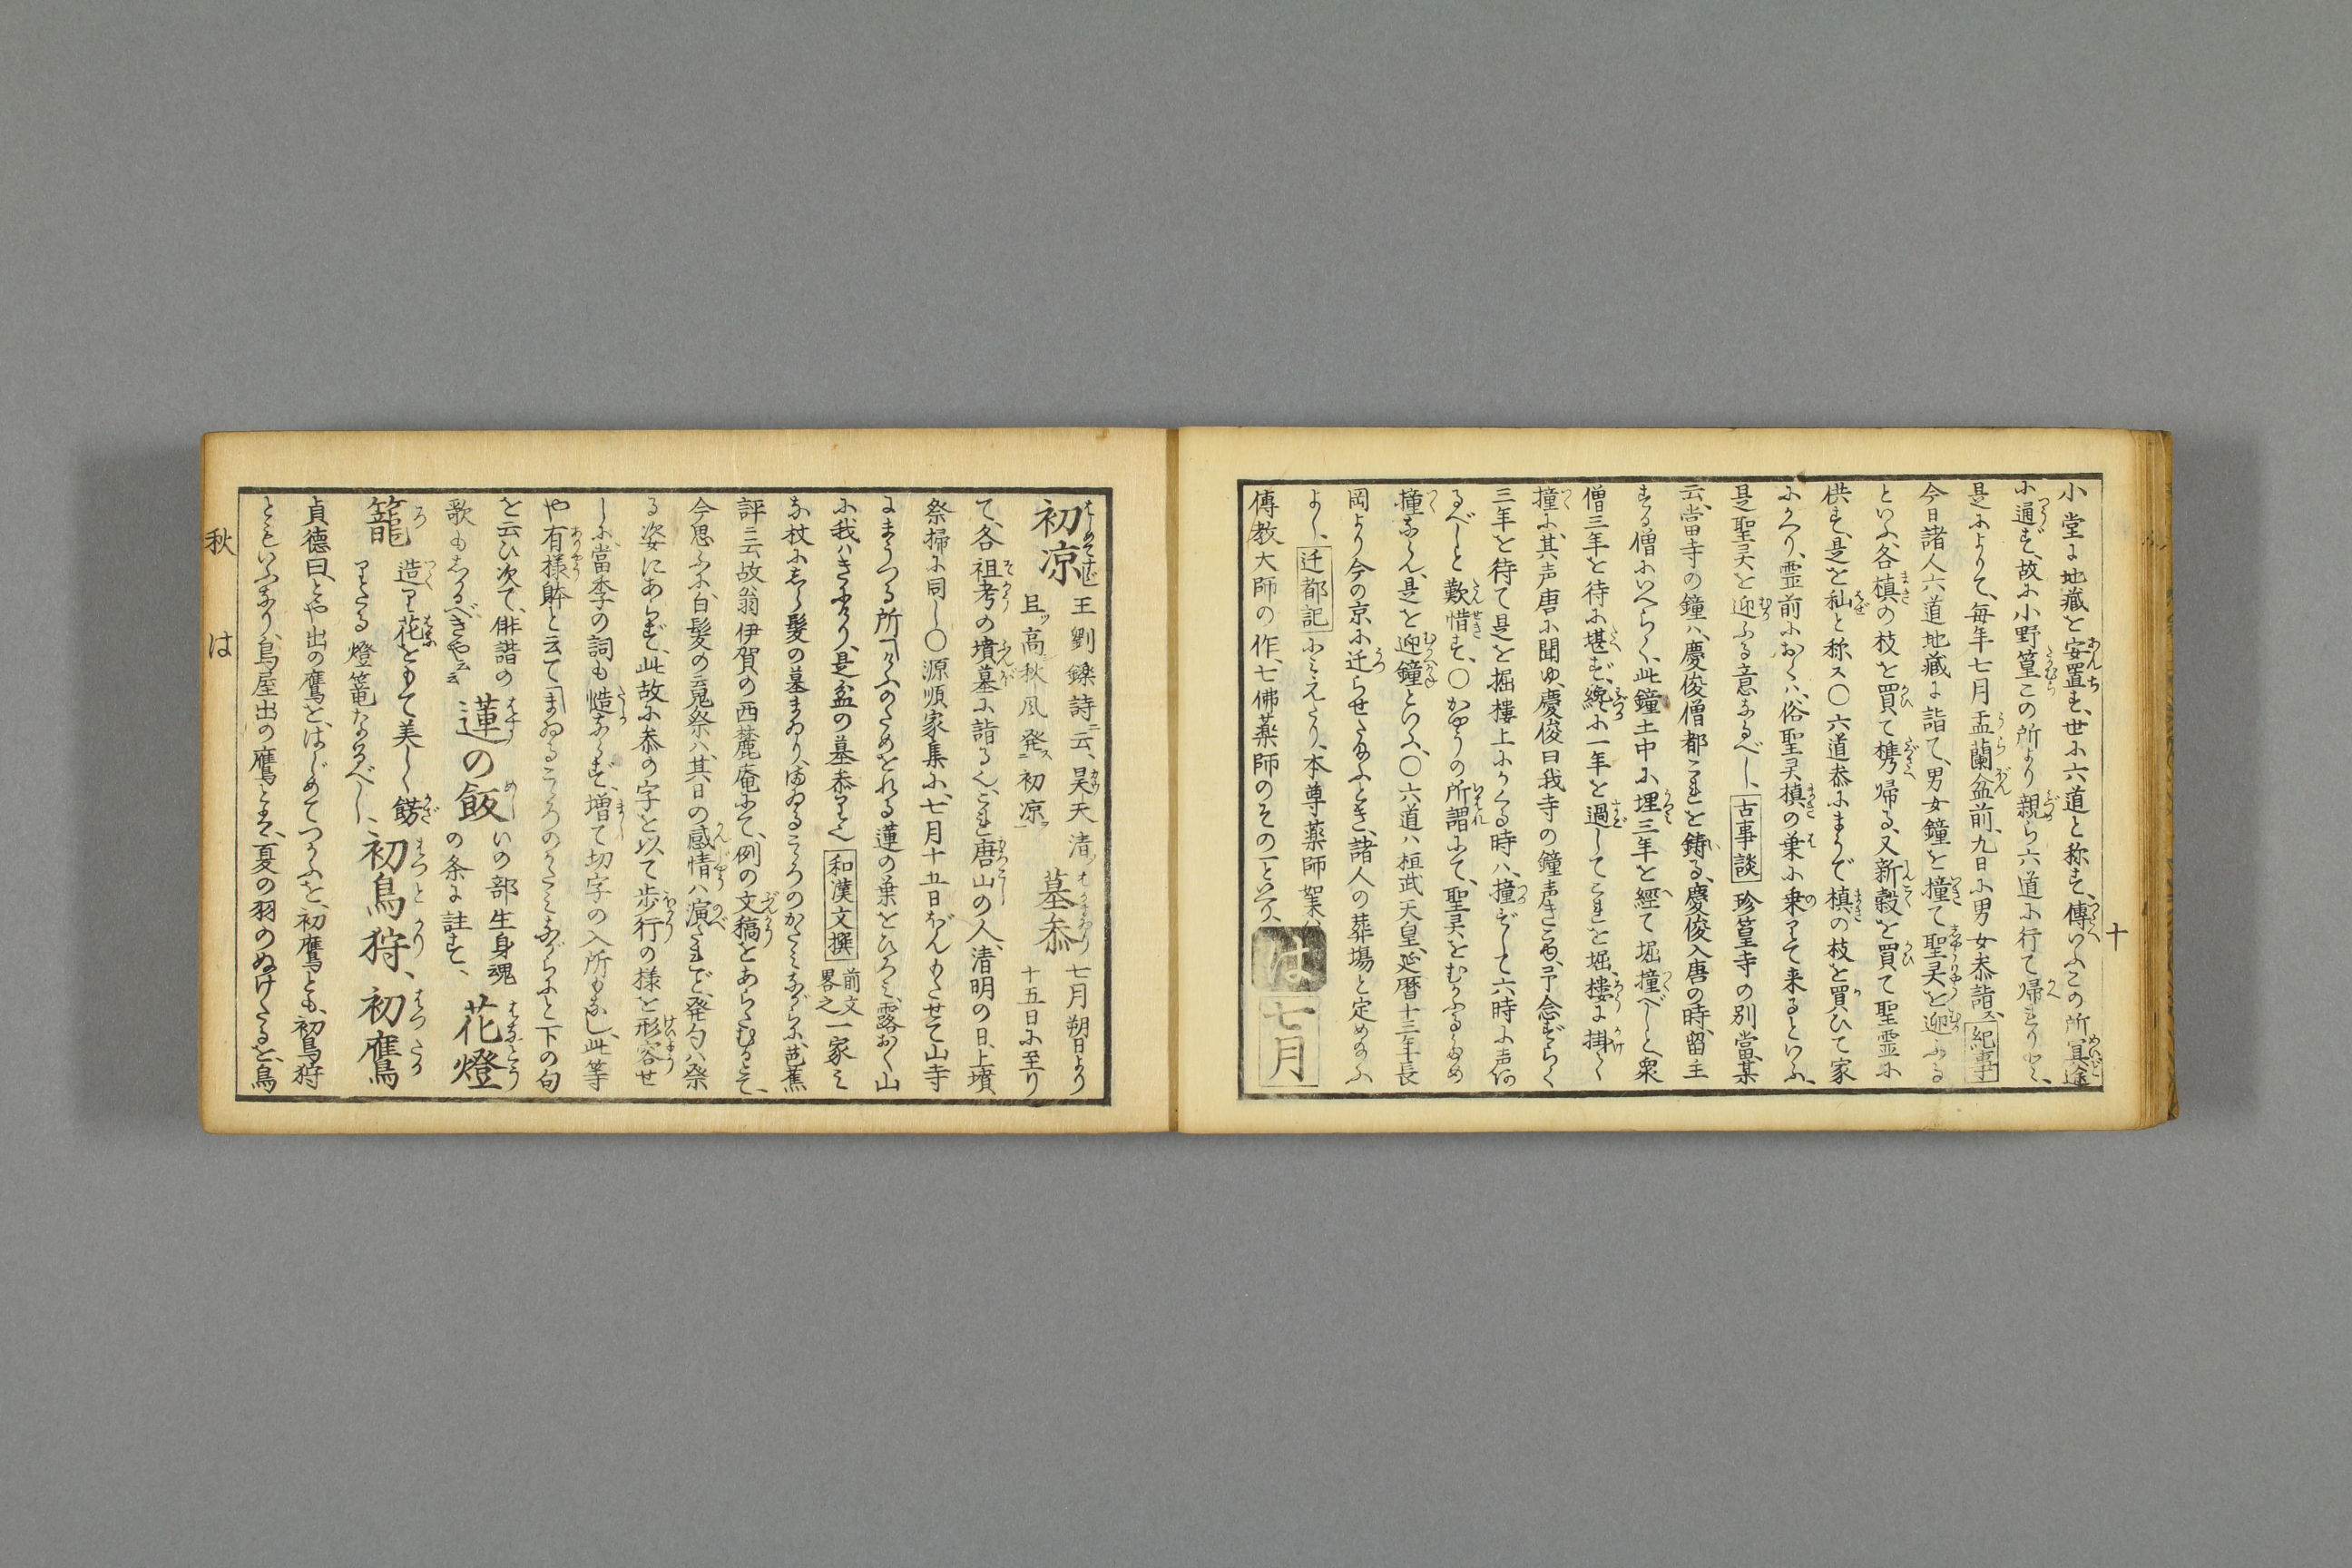 十
小堂に地蔵を安置す、世に六道と称す、傳いふこの所冥途
に通ず、故に小野篁この所より親ら六道に行て帰れりと、
是によりて、毎年七月盂蘭盆前、九日に男女参詣ス、紀事
今日諸人六道地蔵に詣て、男女鐘を撞て聖灵を迎ふる
といふ、各槙の枝を買て携帰る、又新穀を買て聖霊に
供す、是を秈と称ス〇六道参にまうで槙の枝を買ひて家
にかへり、霊前におくハ、俗聖灵槙の葉に乗りて来るといふ、
是聖灵を迎ふる意なるべし、古事談 珍篁寺の別當某
云、當寺の鐘ハ、慶俊僧都これを鋳る、慶俊入唐の時、留主
する僧にいへらく、此鐘土中に埋三年を經て堀撞べしと、粟
僧三年を待に堪ず、纔に一年を過してこれを堀、樓に掛く
撞に、其声唐に聞ゆ、慶俊曰我寺の鐘声きこゆ、予念ずらく
三年を待て是を掘樓上にかくる時ハ、撞ずして六時に声有
るべしと歎惜す、〇かやうの所謂にて、聖灵をむかふるゆめ
撞ならん、是を迎鐘といふ、〇六道ハ桓武天皇、延暦十三年長
岡より今の京に迁らせたまふとき、諸人の葬場と定めたまふ
よし、迁都記にみえたり、本尊薬師如来ハ
傳教大師の作、七佛薬師のその一といふ、は 七月
初凉 王劉鑠詩ニ云、昊天清ク
且ッ高秋風発ス初凉ヲ
墓参 七月朔日より
十五日に至り
て、各祖考の墳墓に詣る也、これ唐山の人、清明の日、上墳、
祭掃に同し〇源順家集に、七月十五日ぼんもたせて山寺
にまうつる所「けふのためをれる蓮の葉をひろみ露おく山
に我ハきにけり、是盆の墓参り也 和漢文撰 前文畧之 一家ミ
な杖にしら髪の墓まゐり、まゐるこころのかたミながらに、芭蕉
評ニ云故翁伊賀の西麓庵にて、例の文稿をあらたむるとて、
今思ふに、白髪の云鬼祭ハ、其日の感情ハ演たれど、発句ハ祭
る姿にあらず、此故に参の字を以て歩行の様を形容せ
しに、當季の詞も慥ならず、増て切字の入所もなし、此等
や有様躰と云て「まゐるこころのかたミながらにと下の句
を云ひ次て、俳諧の
歌もしるべきや云云
蓮の飯 いの部生身魂
の条に註す、
花燈
籠 造り花をもて美しく餝
りたる燈篭なるべし、
初鳥狩、初鷹
貞徳曰、とや出の鷹を、はじめてつかふを、初鷹とも、初鳥狩
ともいふなり、鳥屋出の鷹とは、夏の羽のぬけたるを、鳥
秋
は